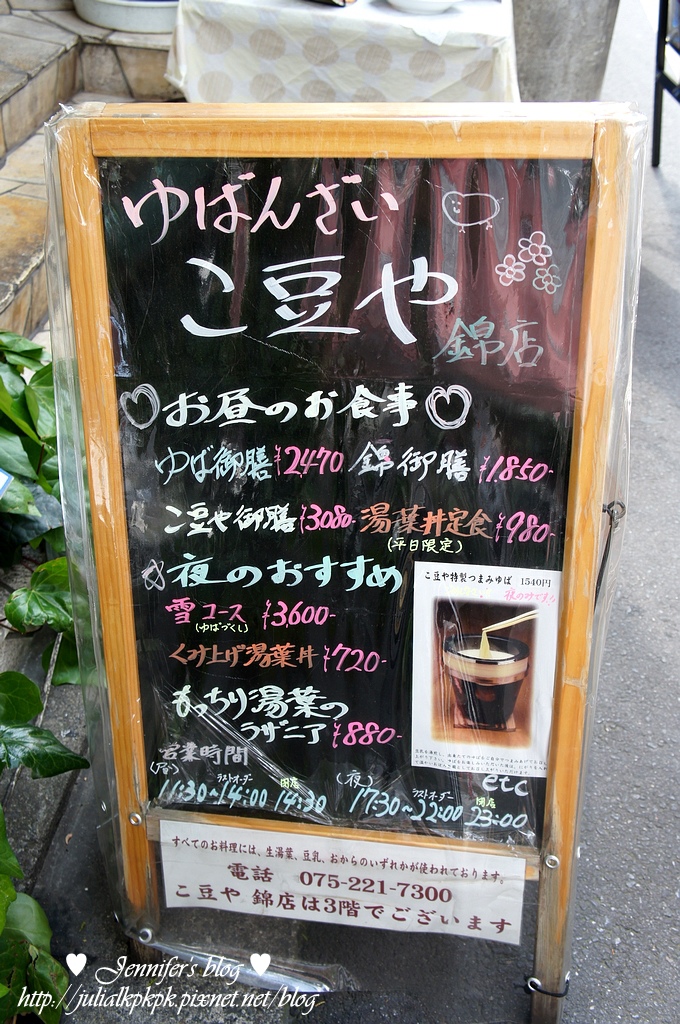 ゆばんざい
こ豆や
錦店
お昼のお食事
ゆば御膳 ¥2470 錦御膳 ¥1850-
こ豆や御膳 ¥3080- 湯葉丼定食 ¥980-
(平日限定)
夜のおすすめ
雪コース ¥3,600-
(ゆばづくし)
くみ上げ湯葉丼 ¥720-
もっちり湯葉の
ラザニア ¥880-
こ豆や特製つまみゆば 1540円
夜のみです
etc
営業時間
(昼) ラストオーダー 閉店 (夜) ラストオーダー 閉店
11:30~14:00 14:30 17:30~22:00 23:00
すべてのお料理には、生湯葉、豆乳、おからのいずれかが使われております。
電話 075-221-7300
こ豆や 錦店は3階でございます
♥ Jennifer's blog ♥
http://julialkpkpk.pixnet.net/blog